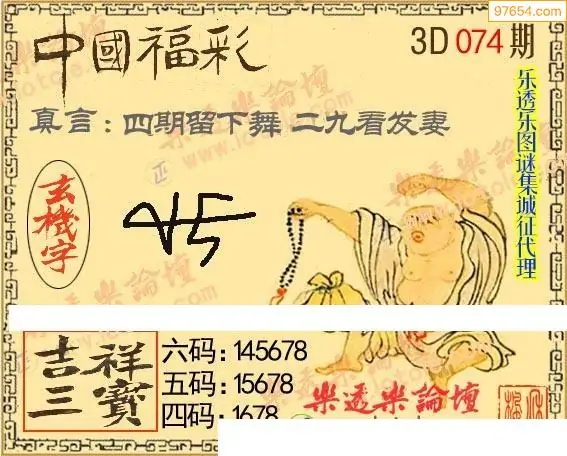 97654.com
中國福彩
3D 074 期
真言：四期留下舞 二九看发妻
乐透乐图谜集城征代理
玄機字
吉祥三寶
六码：145678
五码：15678
四码：1678
樂透樂論壇